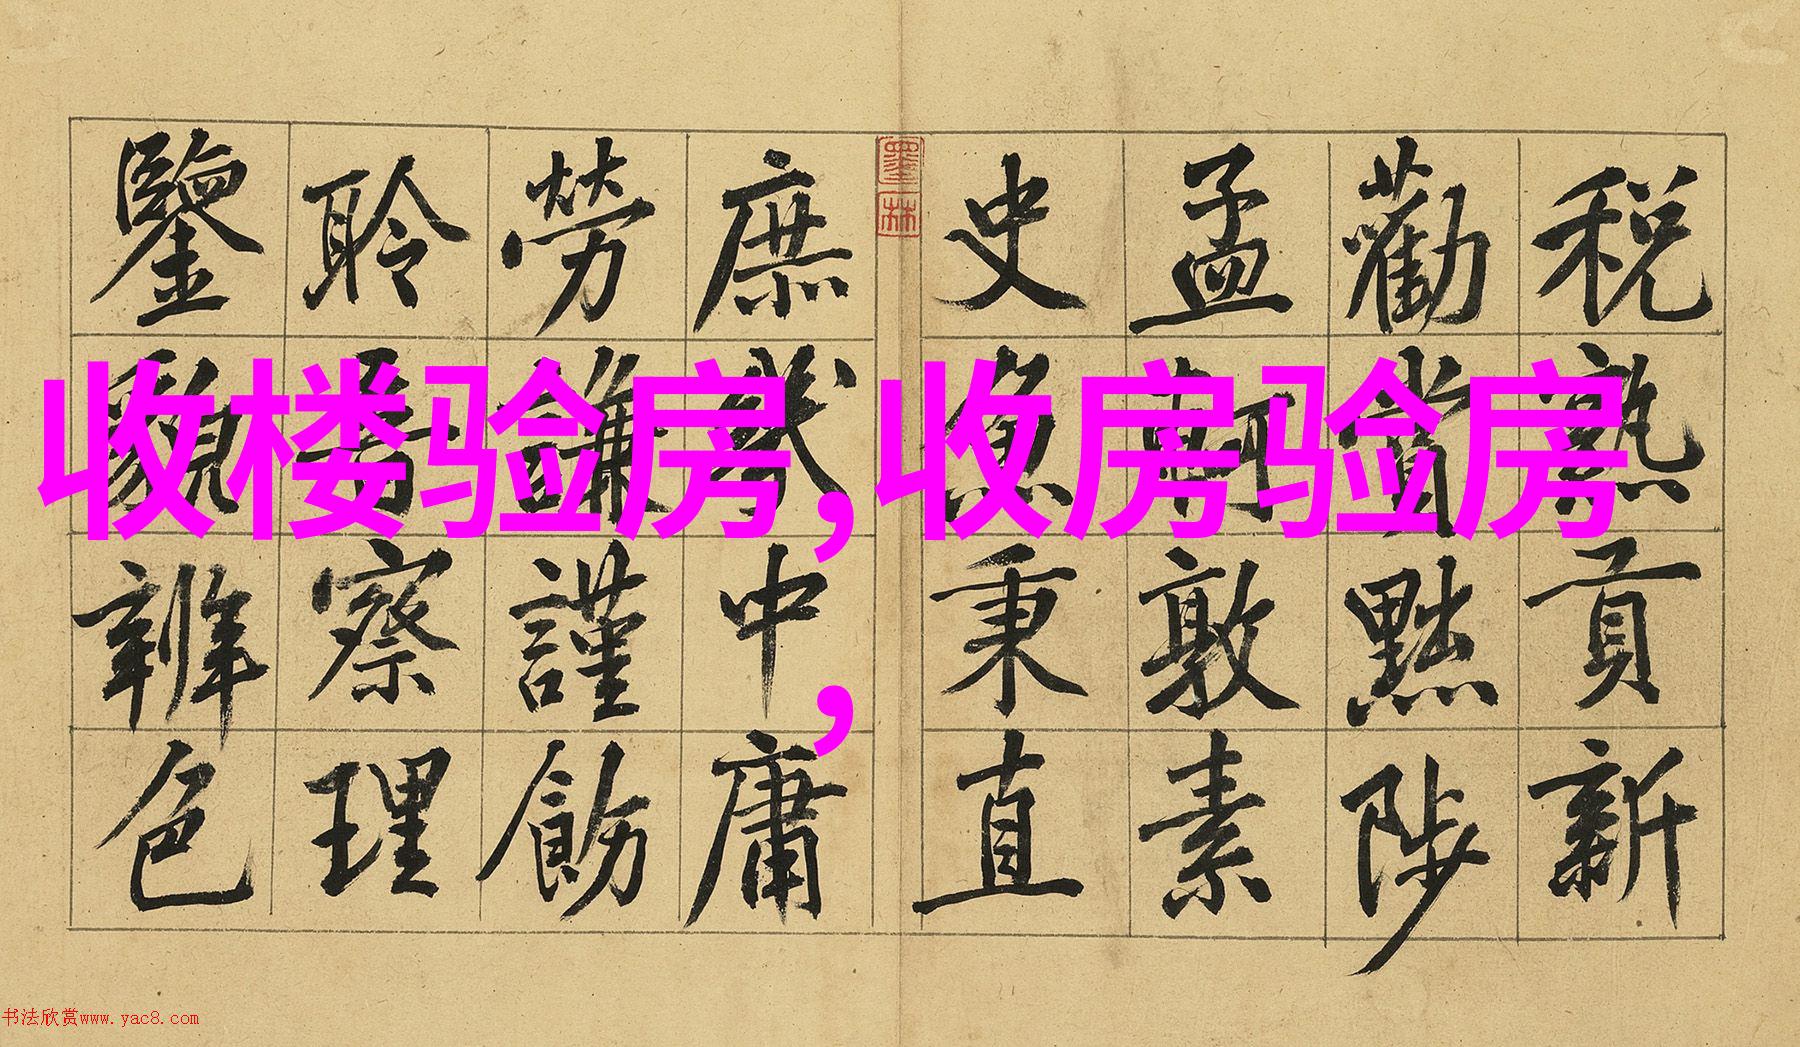 收楼验房,收房验房
,
税熟貢新
勸賞黜陟
孟軻敦素
史魚秉直
墨林
庶幾中庸
勞謙謹飭
聆音察理
鑒貌辨色
书法欣赏www.yac8.com